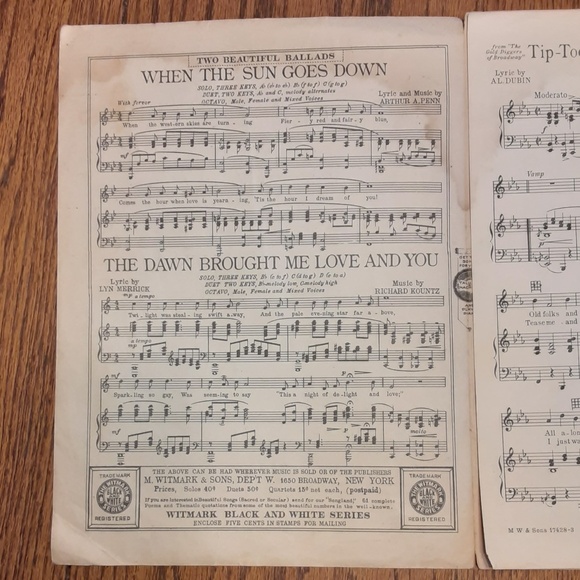 TWO BEAUTIFUL BALLADS
WHEN THE SUN GOES DOWN
SOLO, THREE KEYS, Ab (eb to ab) Bb (f to f) C (g to g)
DUET, TWO KEYS, Ab and C, melody alternates
OCTAVO, Male, Female and Mixed Voices
Lyric and Music by
ARTHUR A. PENN
With fervor
When the west-ern skies are turn-ing Fier-y red and fair-y blue,
mf
Comes the hour when love is yearn-ing, 'Tis the hour I dream of you!
THE DAWN BROUGHT ME LOVE AND YOU
SOLO, THREE KEYS,
DUET TWO KEYS, Bb-melody low, C-melody high
OCTAVO, Male, Female and Mixed Voices
Lyric by
LYN MERRICK
Music by
RICHARD KOUNTZ
mp a tempo
Twi-light was steal-ing swift a-way, And the pale eve-ning star far a-bove,
a tempo
mp
mf
Spark-ling so gay, Was seem-ing to say "This a night of de-light and love;"
mf
p
THE ABOVE CAN BE HAD WHEREVER MUSIC IS SOLD OR OF THE PUBLISHERS
M. WITMARK & SONS, DEPT W. 1650 BROADWAY, NEW YORK
Prices, Solos 40¢ Duets 50¢ Quartets 15¢ net each, (postpaid)
If you are interested in Beautiful Songs (Sacred or Secular) send for our "Songland"
Poems and Thematic quotations from some of the most beautiful numbers in the well-known.
WITMARK BLACK AND WHITE SERIES
ENCLOSE FIVE CENTS IN STAMPS FOR MAILING
TRADEMARK
BLACK AND WHITE SERIES
REGISTERED
TRADEMARK
BLACK AND WHITE SERIES
REGISTERED
from "The
Gold Diggers
of Broadway"
Tip-Toe
Lyric by
AL. DUBIN
Moderato
f
Vamp
p
Old folks and
Tease me and
All a-lon
I just wa
M W & Sons 17428-3